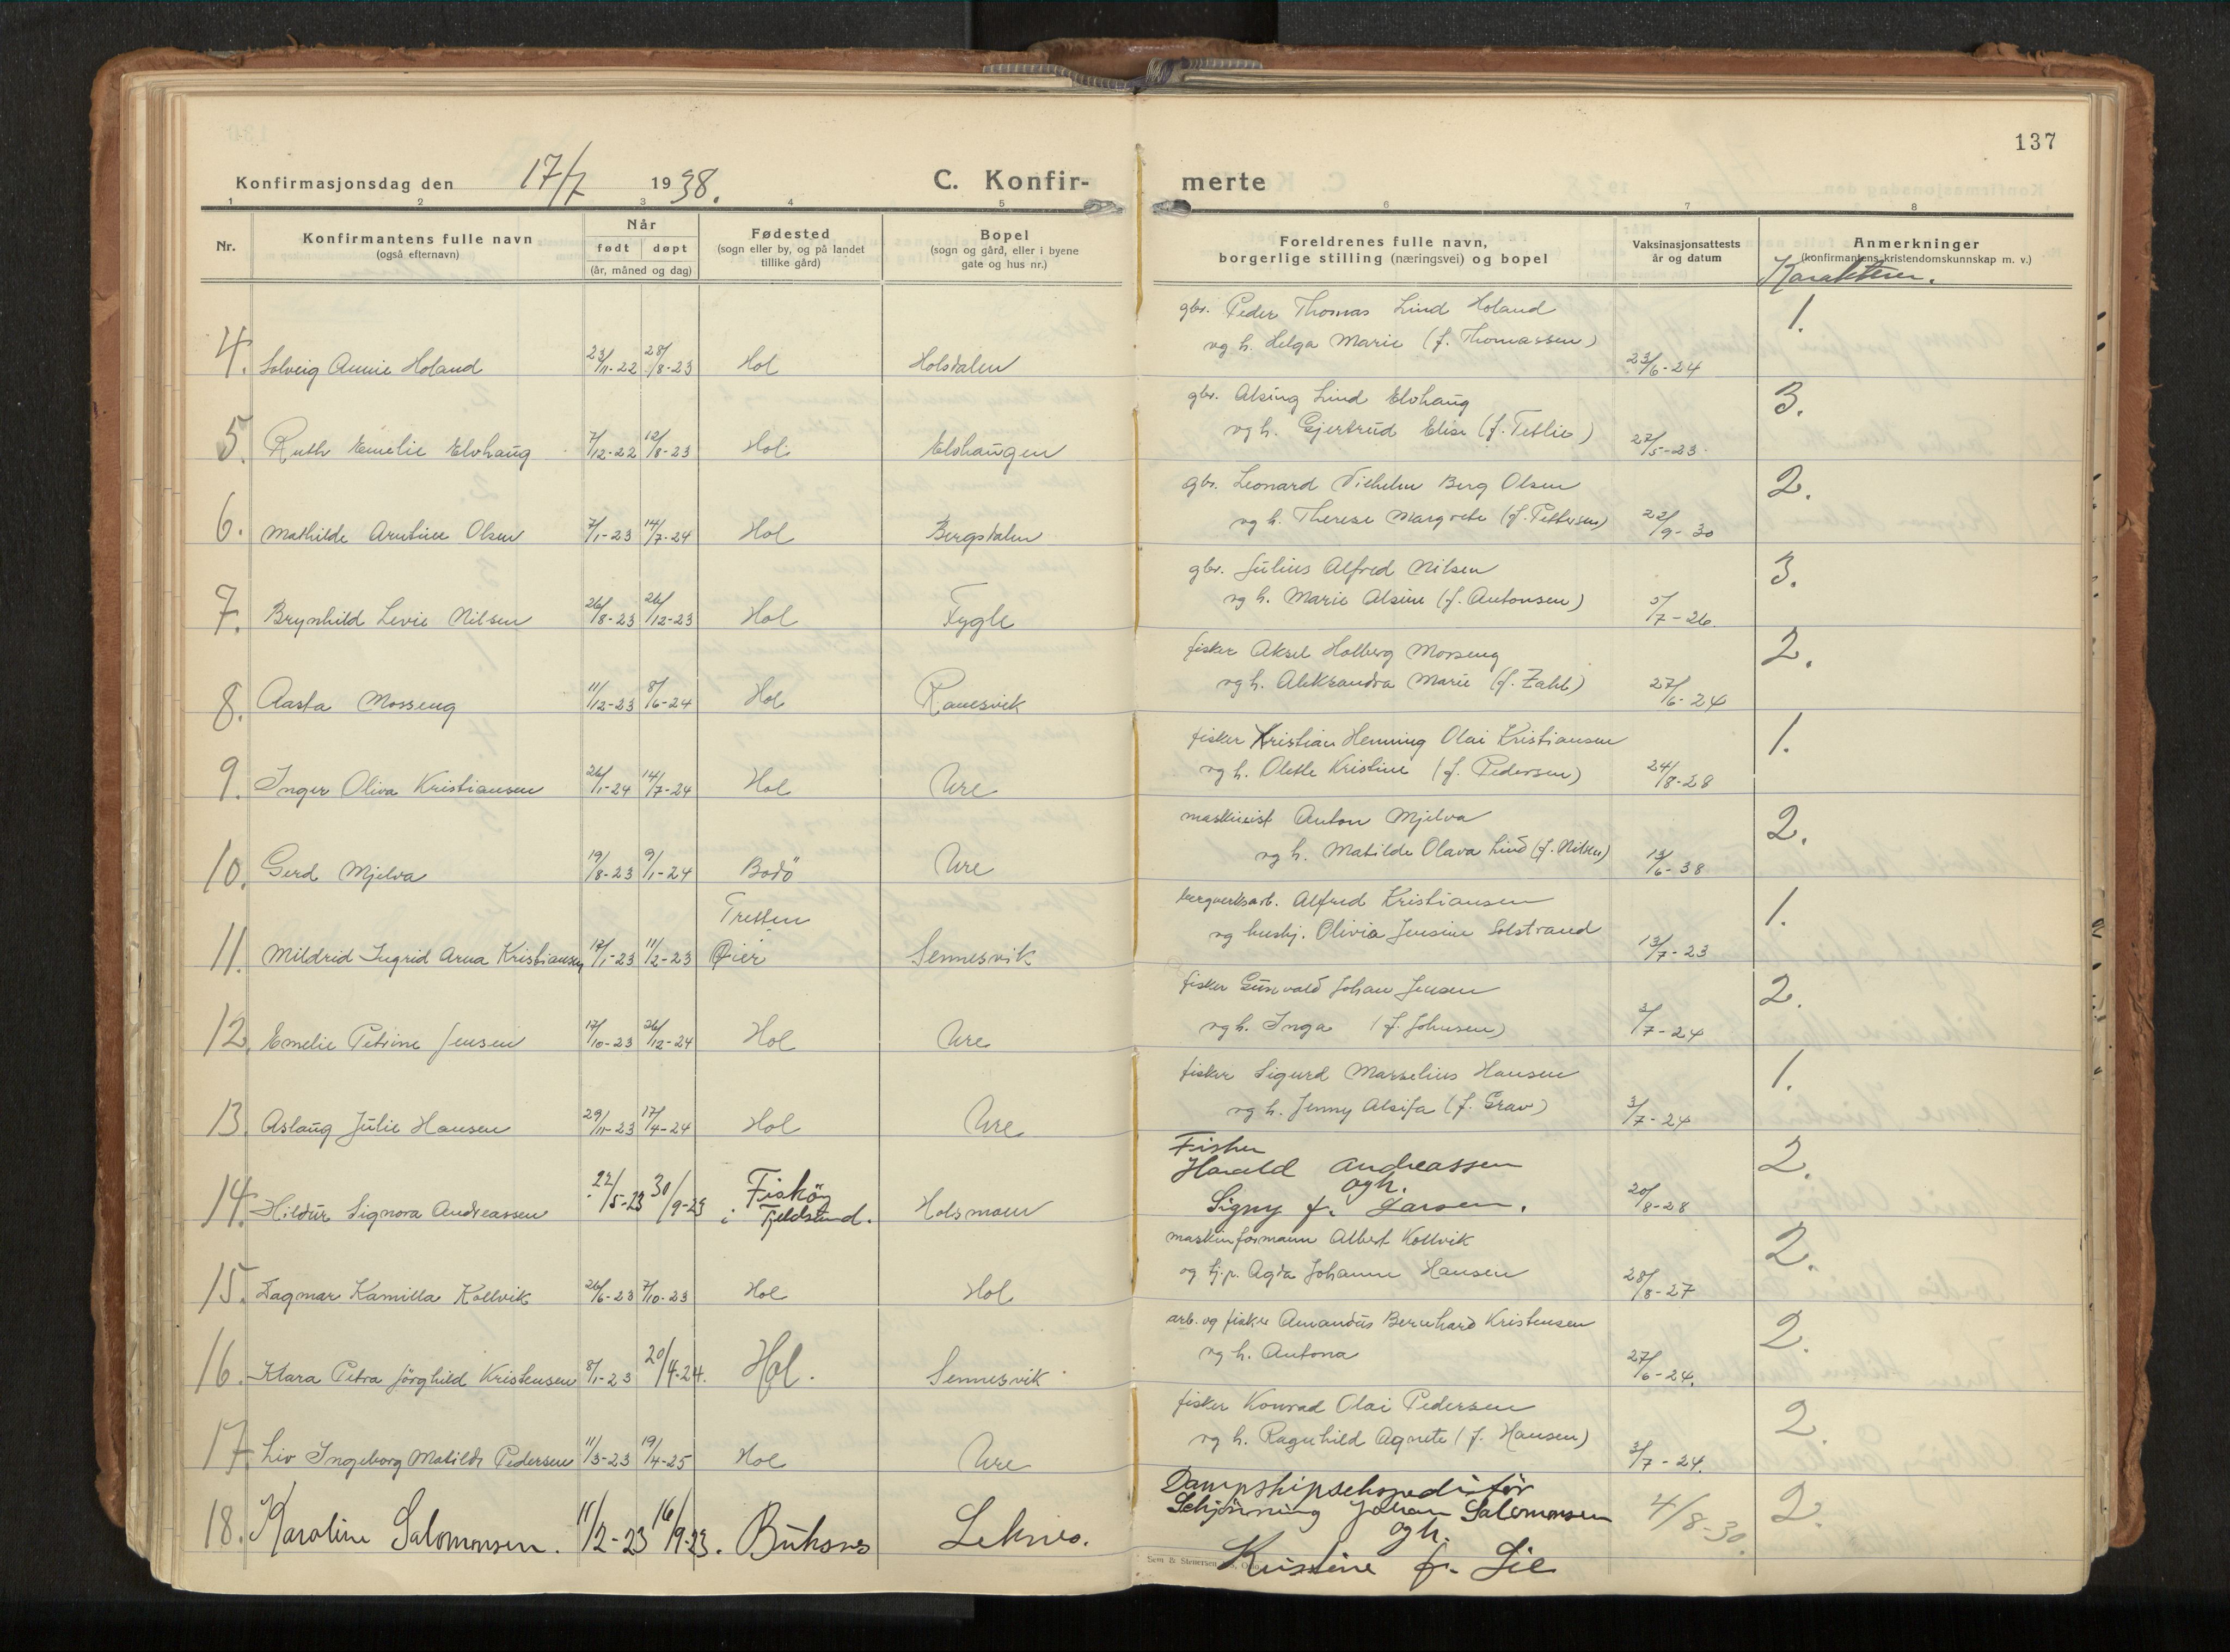 137
Konfirmasjonsdag den 17/7 1938. C. Konfir- merte
1 2 3 4 5 6 7 8
Nr. Konfirmantens fulle navn (også efternavn) Når født døpt (år, måned og dag) Fødested (sogn eller by, og på landet tillike gård) Bopel (sogn og gård, eller i byene gate og hus nr.) Foreldrenes fulle navn, borgerlige stilling (næringsvei) og bopel Vaksinasjonsattests år og datum Anmerkninger (konfirmantens kristendomskunnskap m. v.)
Karakterer.
gbr. Peder Thomas Lind Holand 1.
og h. Helga Marie (f. Thomassen)
4. Solveig Annie Holand 23/11-22 28/8-23 Hol Holsdalen 23/6-24
gbr. Alsing Lind Elvhaug 3.
og h. Gjertrud Elise (f. Tetlie)
5. Ruth Emelie Elvhaug 7/12-22 12/8-23 Hol Elvhaugen 27/5-23
gbr. Leonard Vilhelm Berg Olsen 2.
og h. Therese Margrete (f. Pettersen)
6. Mathilde Arntine Olsen 7/1-23 14/7-24 Hol Bergsdalen 22/9-30
gbr. Julius Alfred Nilsen 3.
og h. Marie Alsine (f. Antonsen)
7. Brynhild Levie Nilsen 26/8-23 26/12-23 Hol Fygle 5/7-26.
fisker Aksel Holberg Mosseng 2.
og h. Aleksandra Marie (f. Zahl)
8. Aasta Mosseng 11/12-23 8/6-24 Hol Ramsvik 27/6-24
fisker Kristian Henning Olai Kristiansen 1.
og h. Oletle Kristine (f. Pedersen)
9. Inger Oliva Kristiansen 26/1-24 14/7-24 Hol Ure 24/8-28
maskinist Anton Mjelva 2.
og h. Matilde Olava Lind (f. Nilsen)
10. Gerd Mjelva 19/8-23 9/1-24 Bodö Ure 13/6-38
bergverksarb. Alfred Kristiansen 1.
Tretten
og hushj. Olivia Jensine Solstrand
11. Mildrid Ingrid Arna Kristiansen 17/1-23 11/2-23 Øier Sennesvik 13/7-23
fisker Gunvald Johan Jensen 2.
og h. Inga (f. Johnsen)
12. Emelie Petrine Jensen 17/10-23 26/12-24 Hol Ure 3/7-24
fisker Sigurd Marselius Hansen 1.
og h. Jenny Alsifa (f. Grav)
13. Aslaug Julie Hansen 29/11-23 17/4-24 Hol Ure 3/7-24
Fisker
Harald Andreassen 2.
ogh.
14. Hildur Signora Andreassen 22/5-23 30/9-23 Fisköy i Tjeldsund. Holsmoen 20/8-28
Signy f. Larsen.
maskinformann Albert Kollvik 2.
og hj.p. Agda Johanne Hansen
15. Dagmar Kamilla Kollvik 26/6-23 7/10-23 Hol Hol 28/8-27
arb. og fisker Amandus Bernhard Kristensen 2.
og h. Antona
16. Klara Petra Jörghild Kristensen 8/1-23 20/4-24. Hol. Sennesvik 27/6-24.
fisker Konrad Olai Pedersen 2.
og h. Ragnhild Agnete (f. Hansen)
17. Liv Ingeborg Matilde Pedersen 11/3-23 19/4-25 Hol Ure 3/7-24.
Dampskipsekspeditör
Schjönning Johan Salomonsen 4/8-30. 2.
ogh.
18. Karoline Salomonsen. 11/2-23 16/9-23. Buksnes Leknes.
Kristine f. Lie
Sem & Stenersen